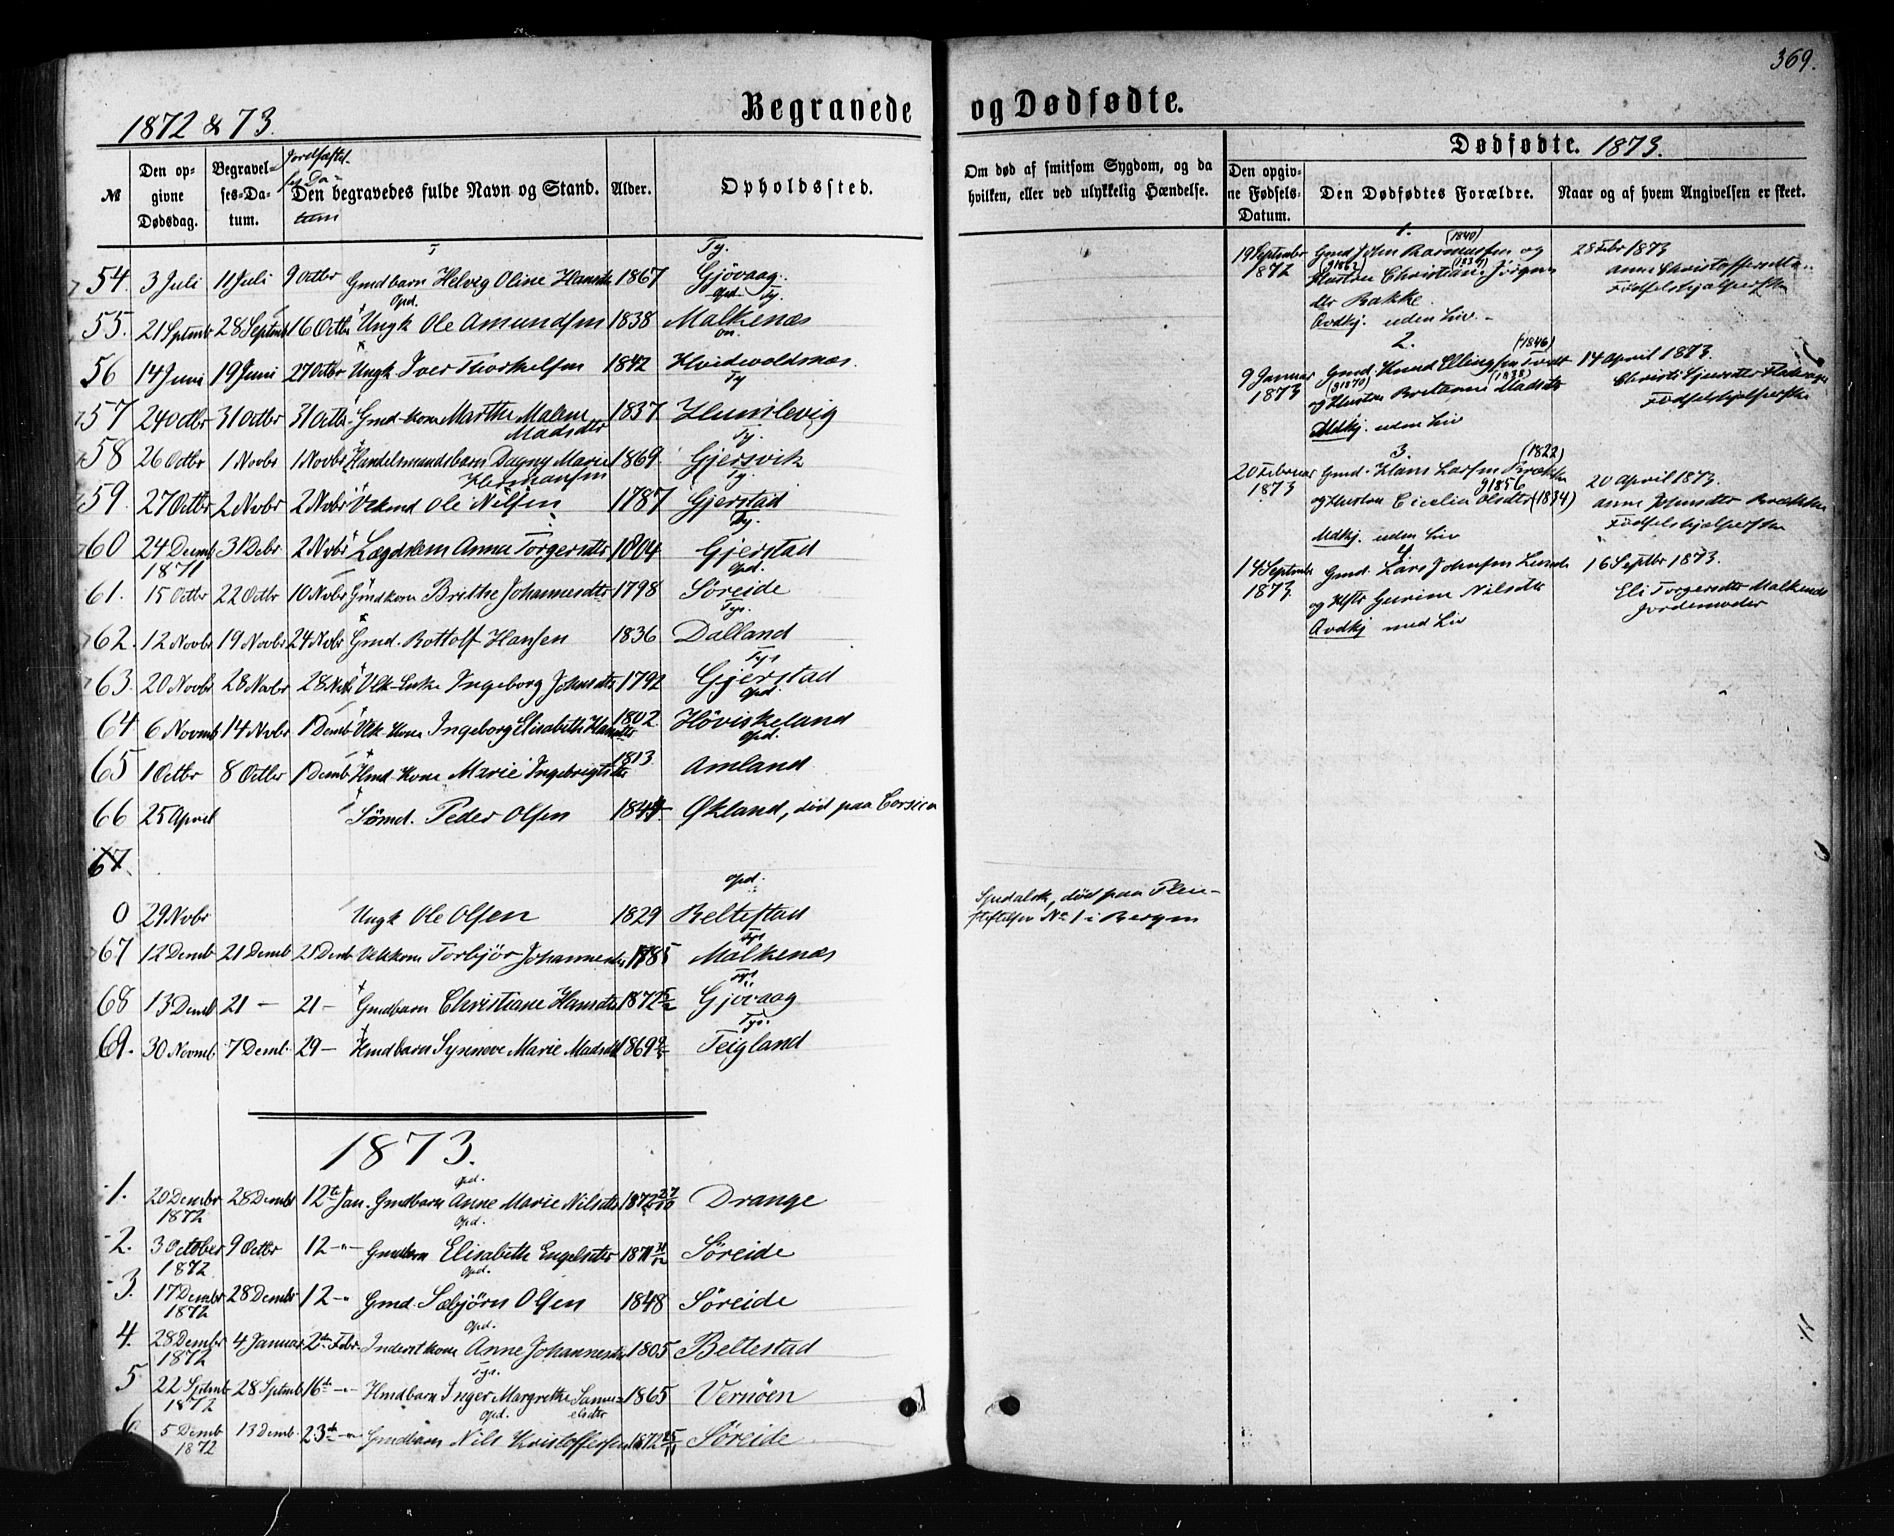 369.
1872 & 73.
Begravede og Dødfødte.
Dødfødte. 1873.
№
Den opgivne Dødsdag.
Begravelses-Datum.
Jordfæstelses-Datum
Den begravedes fulde Navn og Stand.
Alder.
Opholdssted.
Om død af smitsom Sygdom, og da hvilken, eller ved ulykkelig Hændelse.
Den opgivne Fødsels-Datum.
Den Dødfødtes Forældre.
Naar og af hvem Angivelsen er skeet.
54. 3 Juli 11 Juli 9 Octbr Gmdbarn Helvig Oline Hansdtr 1867 Ty. Gjøvaag
55. 21 Septmbr 28 Septmbr 16 Octbr Ungk Ole Amundsen 1838 Malkenæs
56 14 Juni 19 Juni 27 Octbr Ungk Iver Thorkelsen 1842 Hvidevoldsnæs.
57 24 Octbr 31 Octbr 31 Octbr Gmd-kone Marthe Malene Madsdtr 1837 Ty Humlevig
58 26 Octbr 1 Novbr 1 Novbr Handelsmandsbarn Dagny Marie Hermansen 1869. Ty. Gjersvik
59. 27 Octbr 2 Novbr 2 Novbr Vekmd Ole Nilsen 1787 Ty. Gjerstad
60 24 Decmb 1871 31 Decbr 2 Novbr Lægdslem Anna Torgersdtr 1804 Ty. Gjerstad
61. 15 Octbr 22 Octbr 10 Novbr Gmdkone Brithe Johannesdtr 1798 Opd. Søreide
62. 12 Novbr 19 Novbr 24 Novbr Gmd. Bottolf Hansen 1836 Tys. Dalland
63. 20 Novbr 28 Novbr 28 Novbr Vek-Enke Ingeborg Johnsdtr 1792 Tys Gjerstad
64 6 Novmb 14 Novbr 1 Decmb Vek-Kone Ingeborg Elisabeth Hansdtr 1802. Opd. Høviskeland
65 1 Octbr 8 Octbr 1 Decmb Hmd-Kone Marie Ingebrigtsdtr 1813 Opd. Amland
66 25 April Sømd. Peder Olsen 1844 Økland, død paa Corsica
67.
0 29 Novbr Ungk Ole Olsen 1829 Opd. Beltestad
Spedalsk, død paa Pleiestiftelsen No 1 i Bergen
67 12 Decmb 21 Decmb 21 Decmb Vekkone Torbjør Johannesdtr 1785 Tys Malkenæs
68 13 Decmb 21 — 21 — Gmdbarn Christiane Hansdtr 1872 Tys Gjøvaag
69. 30 Novmb. 7 Decmb. 29 — Hmdbarn Synneve Marie Madsdtr 1869 Tys. Teigland
1873.
1. 20 Decmbr 1872 28 Decmb 12te Jan. Gmdbarn Anne Marie Nilsdtr 1872 27/10 Opd. Drange
2. 3 October 1872 9 Octbr 12 -"- Gmdbarn Elisabeth Engelsdtr 1871 Opd. Søreide
3. 17 Decmbr 1872 28 Decmbr 12 -"- Gmd. Sæbjørn Olsen 1848 Opd. Søreide
4. 28 Decmbr 1872 4 Januar 2den Febr. Inderstkone Anne Johannesdtr 1805 Opd. Beltestad
5 22 Septmb 1872 28 Septmb 16de -"- Hmdbarn Inger Margrethe Samuelsdtr 1865 Tys. Vernøen
6. 5 Decmb 1872 13 Decmb. 23de -"- Gmdbarn Nils Kristoffersen 1872 25/11 Opd. Søreide
1.
19 September 1872
Gmd John Rasmussen (1840) og Hustru (g1862) Christiane Jørgensdtr (1839) Bakke.
Qvdkj. uden Liv.
28 Febr 1873
Anne Christoffersdtr
Fødselshjælperske
2.
9 Januar 1873
Gmd. Knud Ellingsen Tvedt (1846)
(g1870) og Hustru Bertamie Madsdtr (1838)
Mdkj. uden Liv
14 April 1873.
Christi Sjursdtr Fladvager
Fødselshjælperske
3.
20 Februar 1873
Gmd. Hans Larsen Brække (1822)
g1856
og Hustru Cicelia Olsdtr (1834)
Mdkj. uden Liv
20 April 1873.
Anne Johnsdtr Brække
Fødselshjælperske
4.
14 September 1873
Gmd. Lars Johnsen Lunde og Hstr Gurine Nilsdtr
Qvdkj med Liv
16 Septbr 1873.
Eli Torgersdtr Malkenæs
Jordemoder